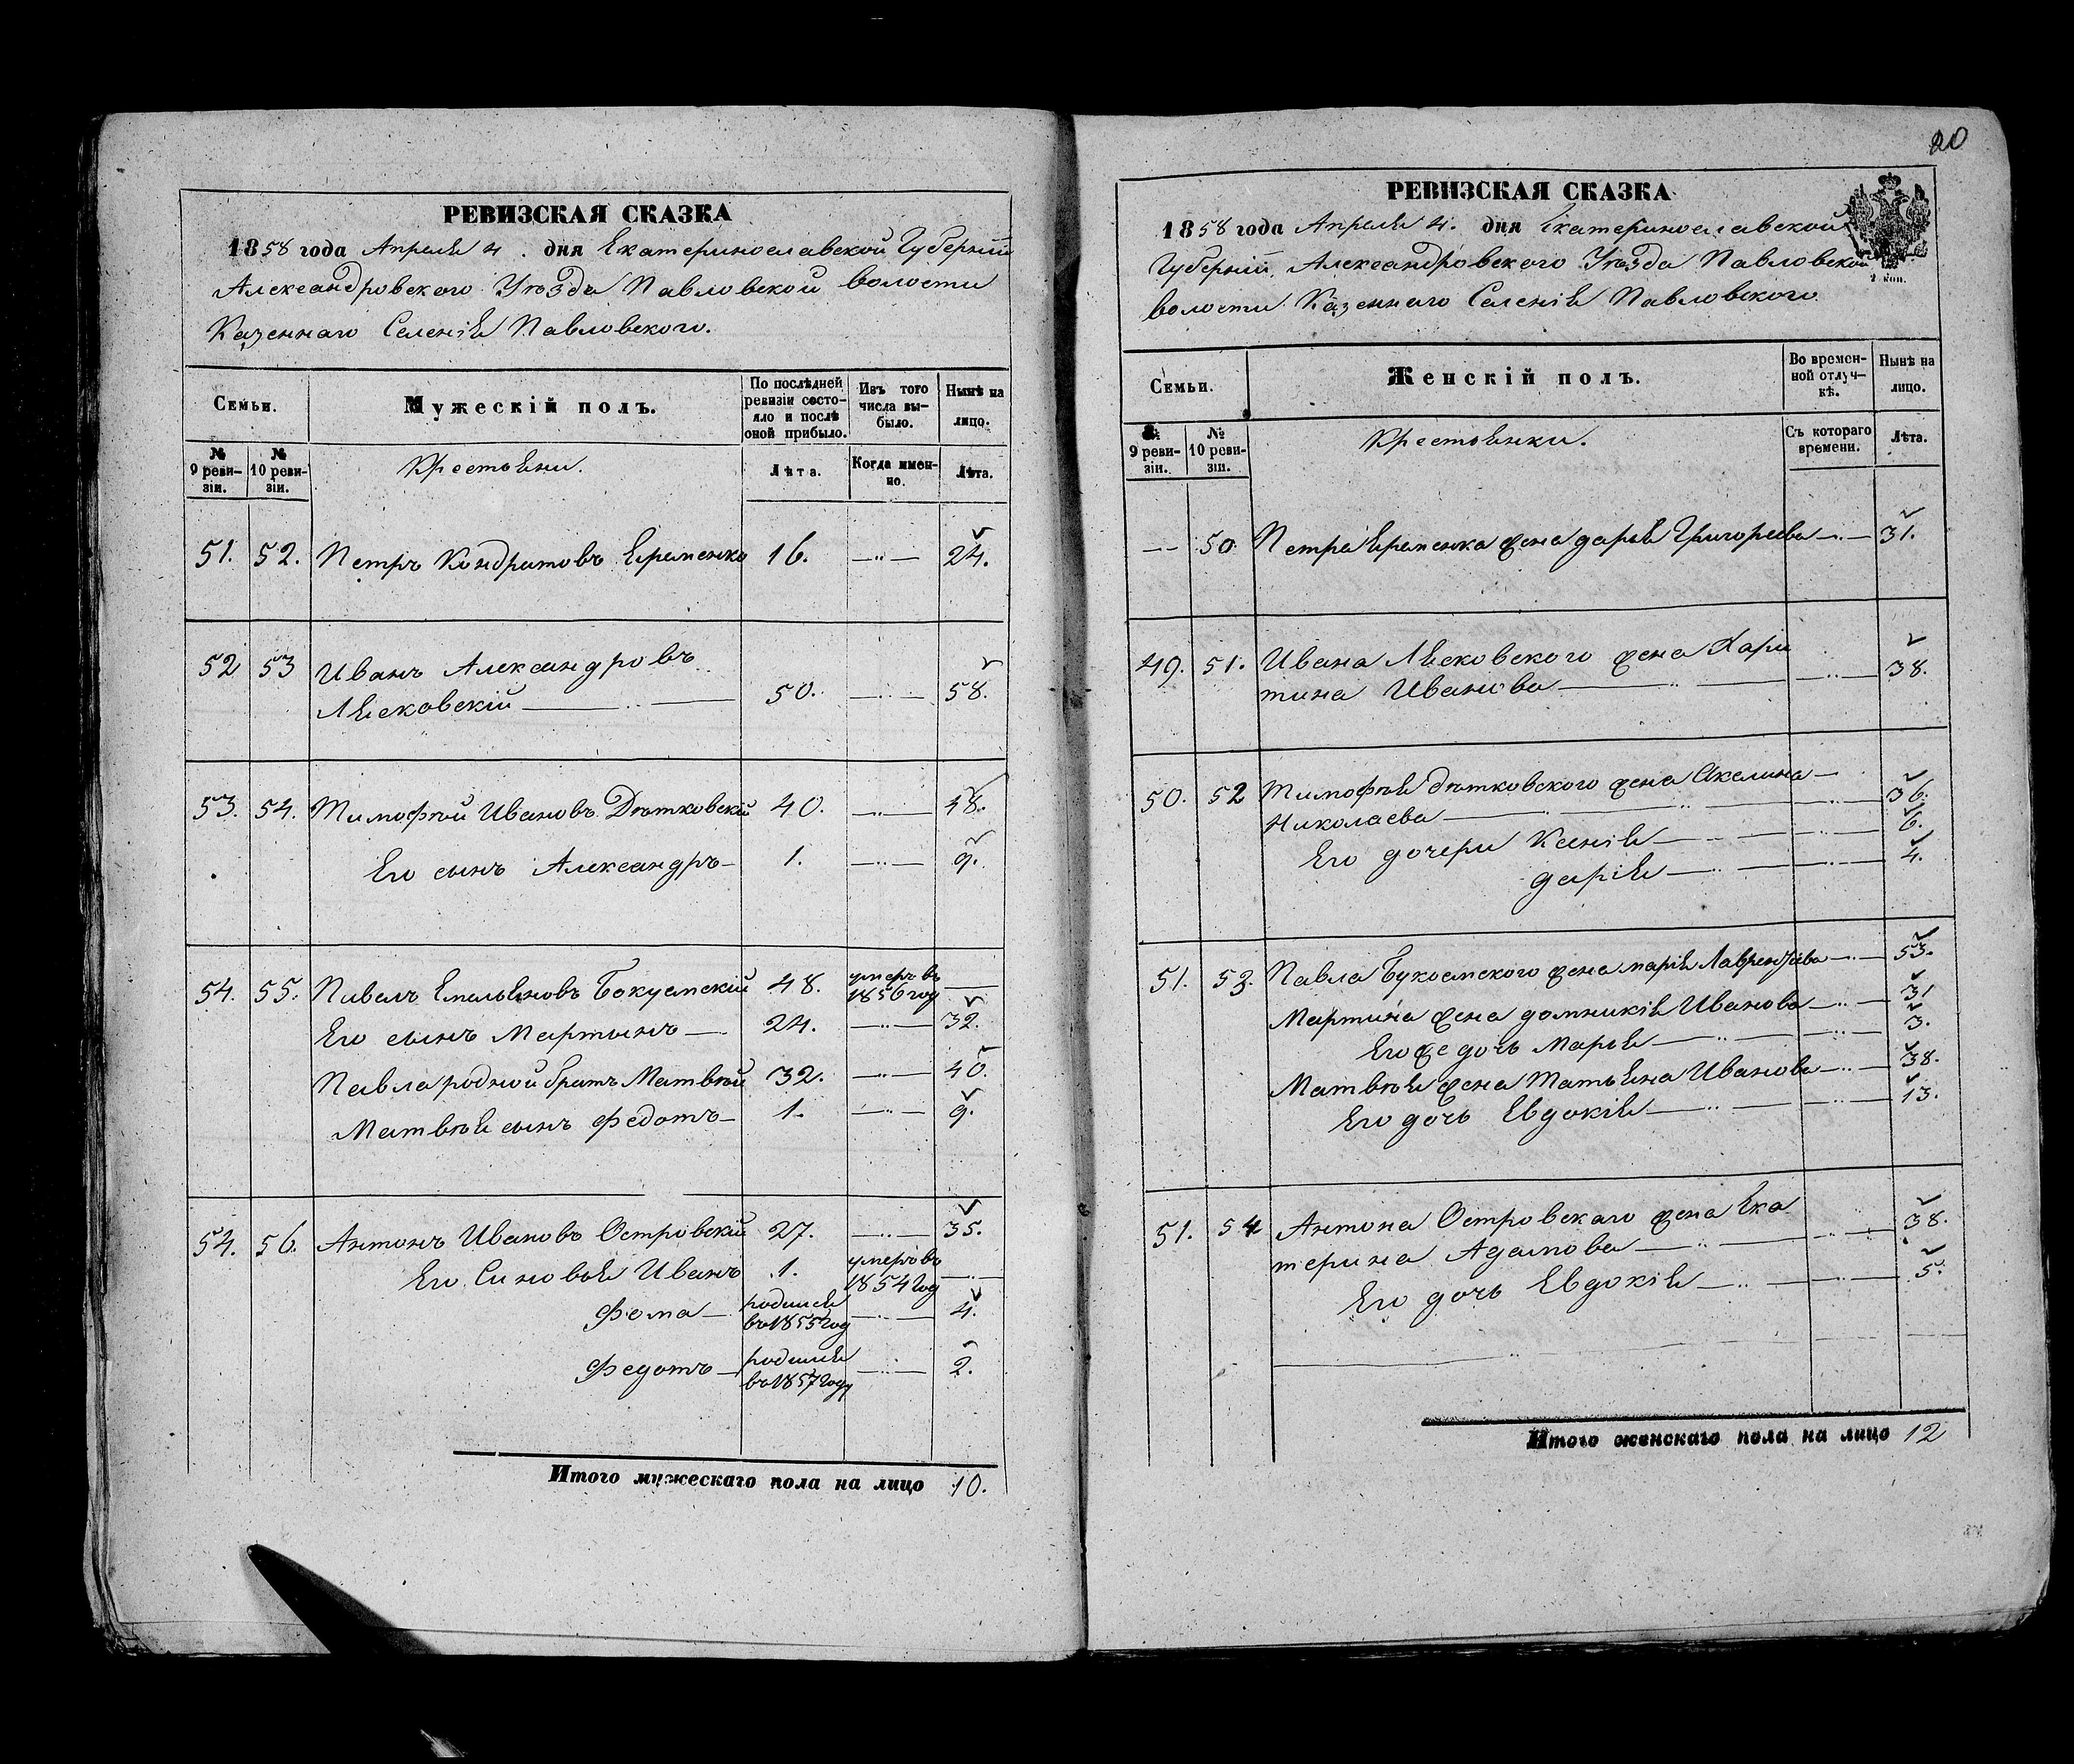 РЕВИЗСКАЯ СКАЗКА
1858 года Апреля 4. дня Екатеринославской Губерніи
Александровского Уѣзда Павловской волости
Казеннаго Селенія Павловского.
Семьи.
Мужескій полъ.
По послѣдней ревизіи состояло и послѣ оной прибыло.
Изъ того числа выбыло.
Нынѣ на лицо.
№ 9 ревизіи.
№ 10 ревизіи.
Крестьяни.
Лѣта.
Когда именно.
Лѣта.
51. 52. Петръ Кондратовъ Ераменко 16. 24.
52 53 Иванъ Александровъ
Лясковскій 50. 58.
53. 54. Тимофѣй Ивановъ Дѣтковскій 40. 48.
Его сынъ Александръ 1. 9.
54. 55. Павелъ Емельяновъ 48. умеръ въ 1856 год
Его сынъ Мартынъ 24. 32.
Павла родной братъ Матвѣй 32. 40.
Матвѣя сынъ Федотъ 1. 9.
54. 56. Антонъ Ивановъ Островскій 27. 35.
Его Синовья Иванъ 1. умеръ въ 1854 год
Фома родился въ 1855 год 4.
Федотъ родился въ 1857 году 2.
Итого мужескаго пола на лицо 10.
20
РЕВИЗСКАЯ СКАЗКА
1858 года Апреля 4. дня Екатеринославской
Губерніи, Александровского Уѣзда Павловской
волости Казеннаго Селенія Павловского.
2 коп.
Семьи.
Женскій полъ.
Во временной отлучкѣ.
Нынѣ на лицо.
№ 9 ревизіи.
№ 10 ревизіи.
Крестьянки.
Съ котораго времени.
Лѣта.
50. Петра Ераменка жена дарья Григорьева 31.
49. 51. Ивана Лясковского жена Хари
тина Иванова 38.
50. 52 Тимофѣя дѣтковского жена Акелина
Николаева 36.
Его дочери Ксенія 6.
дарія 4.
51. 53. Павла жена марія Лаврентьева 53.
Мартина жена домникія Иванова 31
Его же дочь Марья 3.
Матвѣя жена Татьяна Иванова 38.
Его дочь Евдокія 13.
51. 54 Антона Островскаго жена Ека
терина Адамова 38.
Его дочь Евдокія 5.
Итого женскаго пола на лицо 12